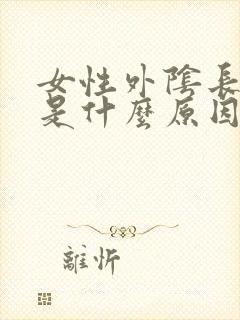 女性外陰長
是什麼原因
離忻